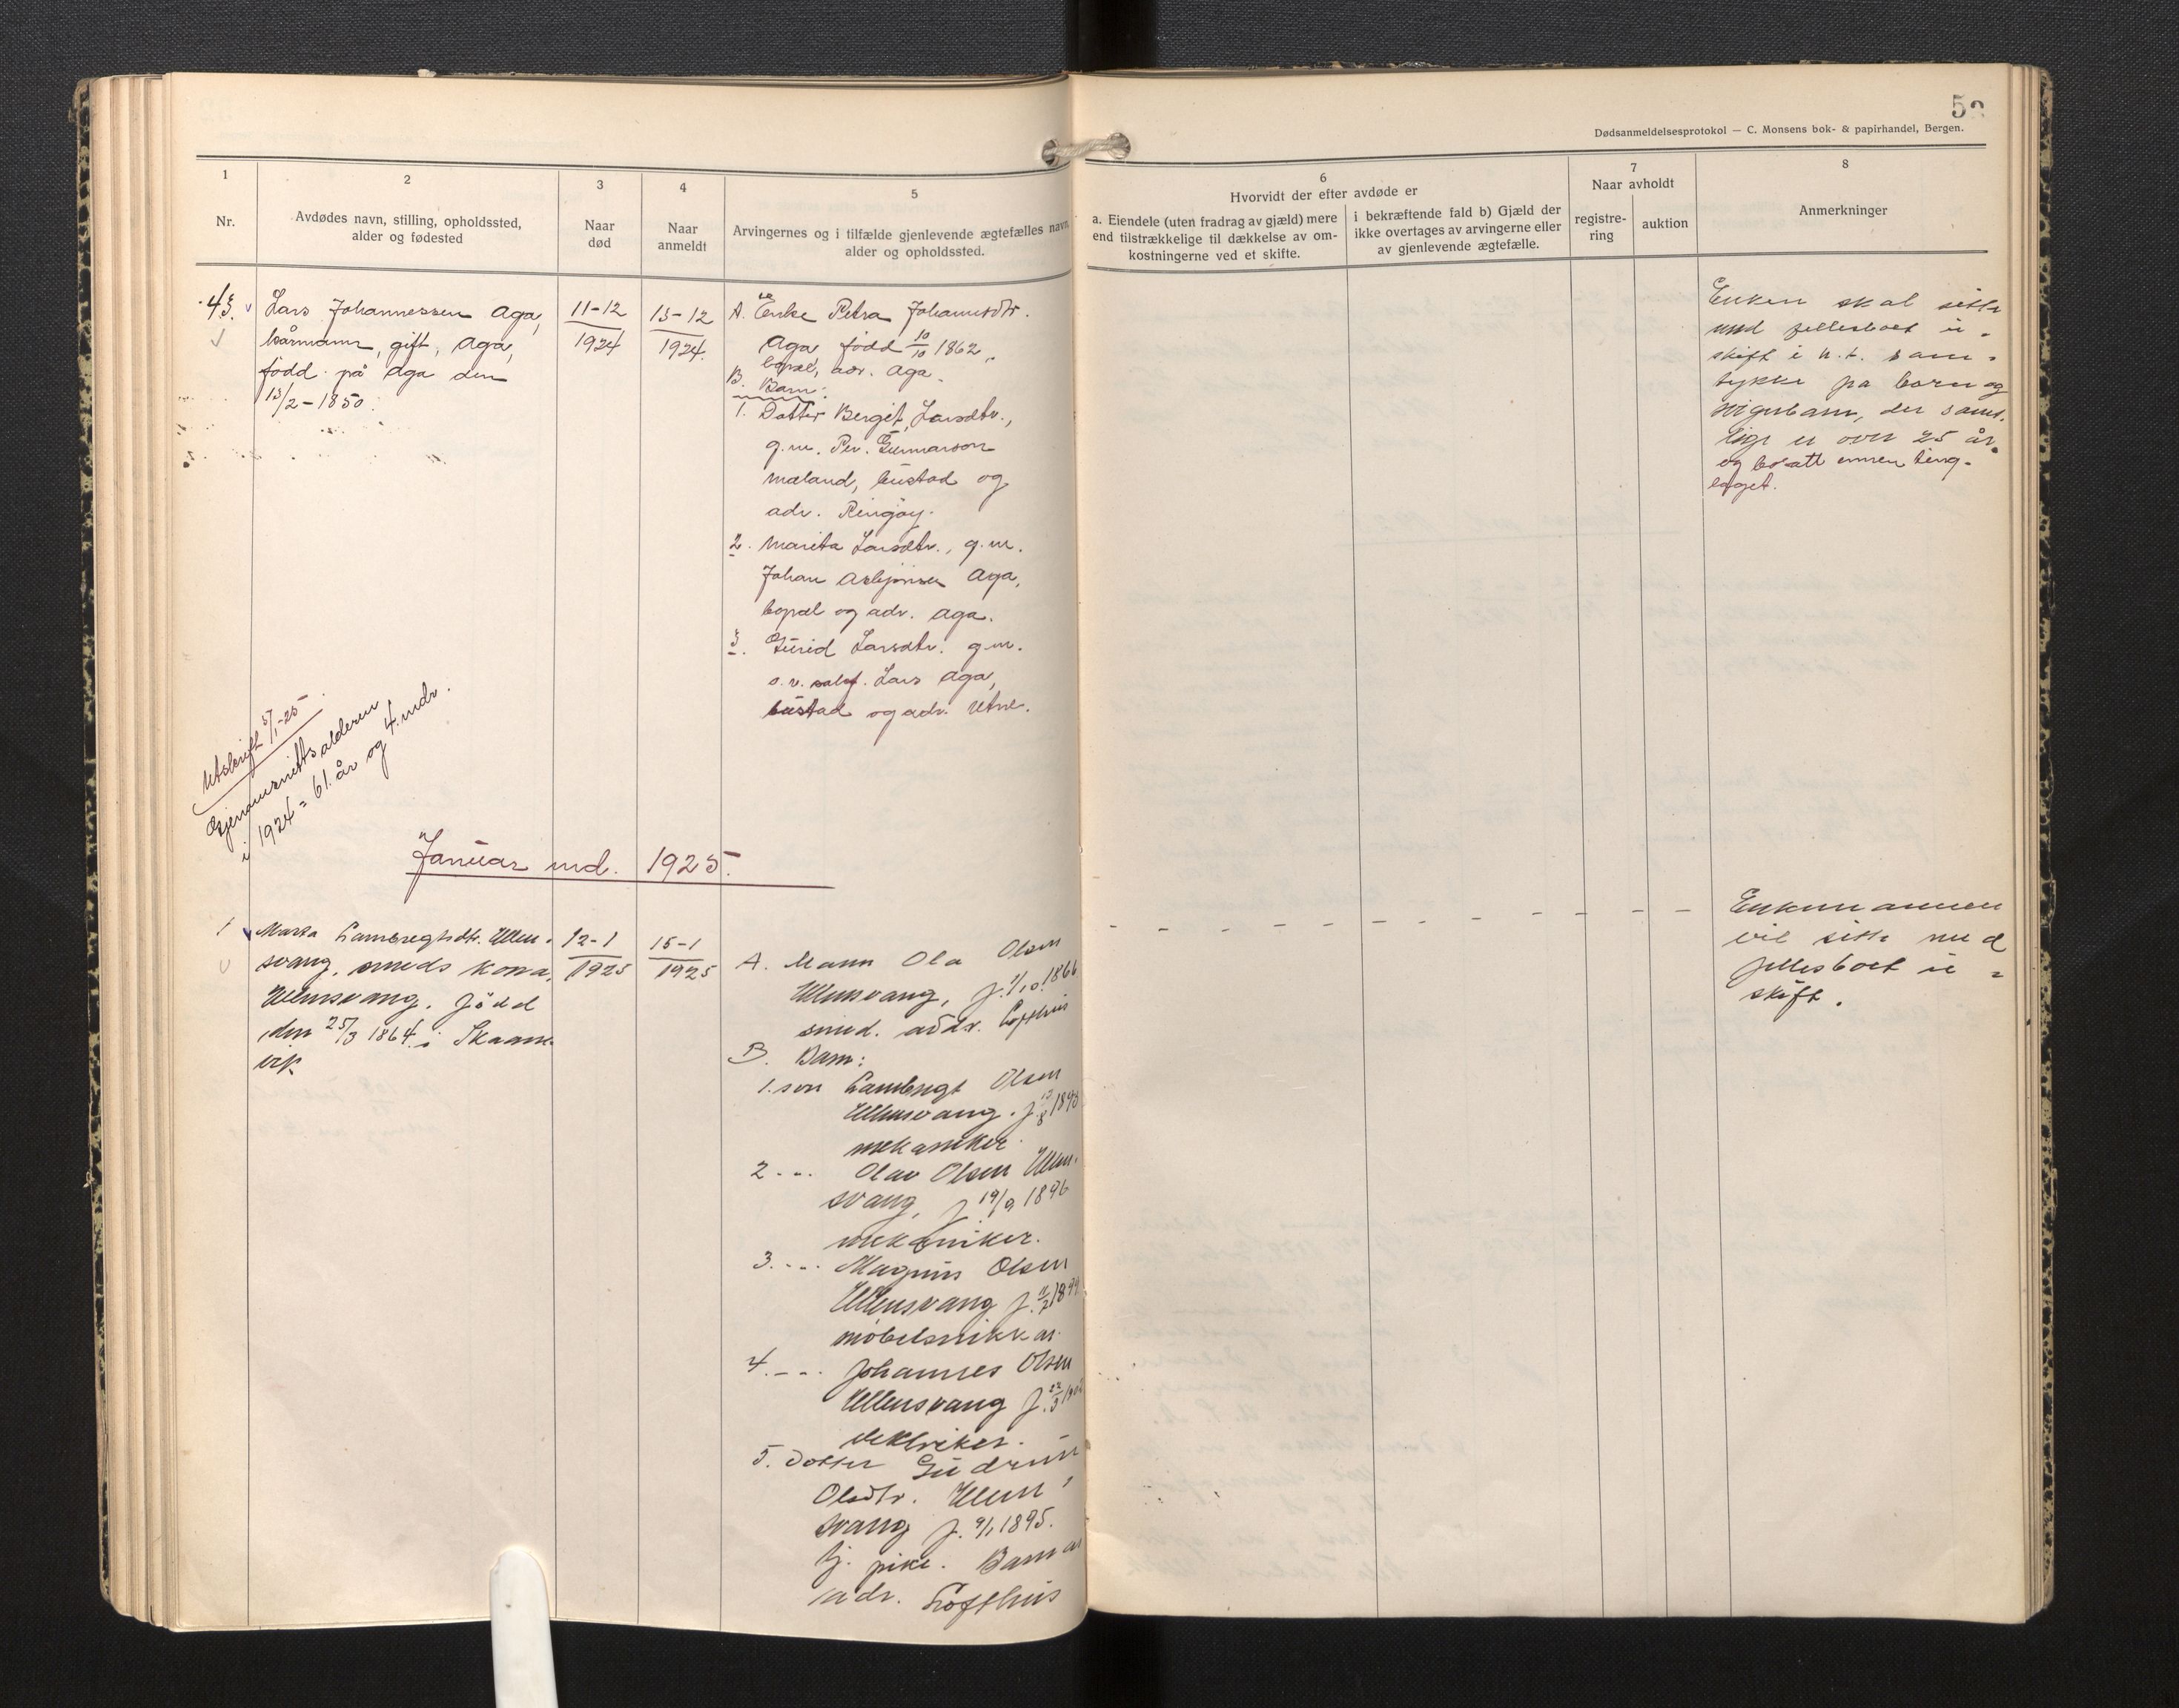 5
Dødsanmeldelsesprotokol — C. Monsens bok- & papirhandel, Bergen.
1
Nr.
2
Avdødes navn, stilling, opholdssted,
alder og fødested
3
Naar
død
4
Naar
anmeldt
5
Arvingernes og i tilfælde gjenlevende ægtefælles navn,
alder og opholdssted.
6
Hvorvidt der efter avdøde er
a. Eiendele (uten fradrag av gjæld) mere
end tilstrækkelige til dækkelse av om-
kostningerne ved et skifte.
i bekræftende fald b) Gjæld der
ikke overtages av arvingerne eller
av gjenlevende ægtefælle.
7
Naar avholdt
registre-
ring
auktion
8
Anmerkninger
43.
Lars Johannessen Aga,
kårmann, gift, Aga,
född på Aga den
13/2 - 1850.
11-12
1924
13-12
1924.
A. Enke Petra Johannsdtr.
Aga, född 10/10 1862,
bopæl, adr. Aga.
B. Barn:
1. Dotter Bergit Larsdtr.,
g.m. Per. Gunnarson
Mæland, bustad og
adr. Ringöy.
2. Marita Larsdtr., g.m.
Johan Asbjörnsen Aga,
bopæl og adr. Aga.
3. Gurid Larsdtr. g.m.
s.v. Lars Aga,
bustad og adr. Utne.
Enken skal sitte
med fellesboet u-
skift i h.t. sam-
tykke på born og
svigerbarn, der samt-
lige er over 25 år
og bosatt innen ting-
laget.
Utskrift 5/1-25
Gjenomsnittsalderen
i 1924 = 61 år og 4 mdr.
Januar md. 1925.
1
Marta Lambregtsdtr. Ullen-
svang, smeds kona,
Ullensvang. född
den 25/3 1864 i Skaane-
vik
12-1
1925
15-1
1925
A. Mann Ola Olsen
Ullensvang, f. 1/10 1866
smed. addr. Lofthus
B. Barn:
1. son Lambregt Olsen
Ullensvang. f. 13/8 1893
mekaniker.
2 - - Olav Olsen Ullen-
svang, f. 19/9 1896
mekaniker.
3. - - Magnus Olsen
Ullensvang f. 11/2 1899
möbelsnikkar.
4. - - Johannes Olsen
Ullensvang f.
elektriker.
5. Dotter Gudrun
Olsdtr. Ullen-
svang f. 9/1 1895.
tj. pike. Barnas
adr. Lofthus
Enkemannen
vil sitte med
fellesboet u-
skift.